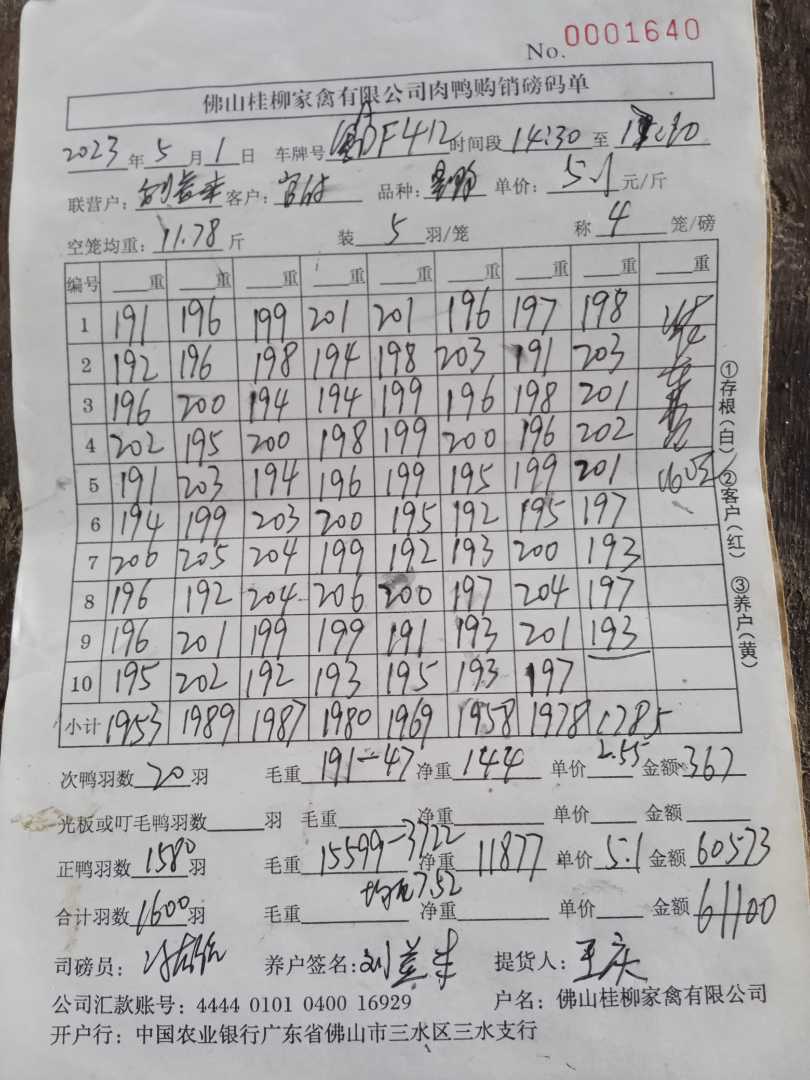 No. 0001640
佛山桂柳家禽有限公司肉鸭购销磅码单
2023年5月1日 车牌号 DF412 时间段 14:30 至
联营户: 客户: 品种: 单价: 5.1 元/斤
空笼均重: 11.78 斤 装 5 羽/笼 称 4 笼/磅
编号 重 重 重 重 重 重 重 重 重
1 191 196 199 201 201 196 197 198
2 192 196 198 194 198 203 191 203
3 196 200 194 194 199 196 198 201
4 202 195 200 198 199 200 196 202
5 191 203 194 196 199 195 199 201
6 194 199 203 200 195 192 195 197
7 200 205 204 199 192 193 200 193
8 196 192 204 206 200 197 204 197
9 196 201 199 199 191 193 201 193
10 195 202 192 193 195 193 197
小计 1953 1989 1987 1980 1969 1958 1978 1785
次鸭羽数 20 羽 毛重 191-47 净重 144 单价 2.55 金额 367
光板或叮毛鸭羽数 羽 毛重 净重 单价 金额
正鸭羽数 1580 羽 毛重 15599-3722 净重 11877 单价 5.1 金额 60573
均重7.52
合计羽数 1600 羽 毛重 净重 单价 金额 61100
司磅员: 养户签名: 刘兰来 提货人: 王庆
公司汇款账号: 4444 0101 0400 16929 户名: 佛山桂柳家禽有限公司
开户行: 中国农业银行广东省佛山市三水区三水支行
①存根(白) ②客户(红) ③养户(黄)